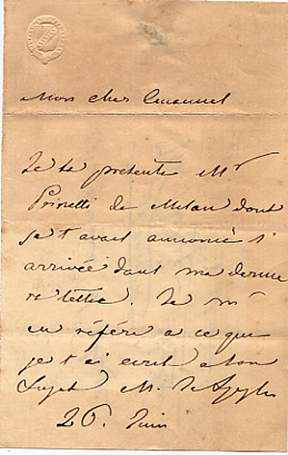 Mon cher Emanuel
Je te présente Mr
Prinetti de Milan dont
je t'avais annoncé l'
arrivée dans ma derniè
re lettre. Je m'
en réfère a ce que
je t'ai ecrit a son
Sujet M. d'Azeglio
26. Juin